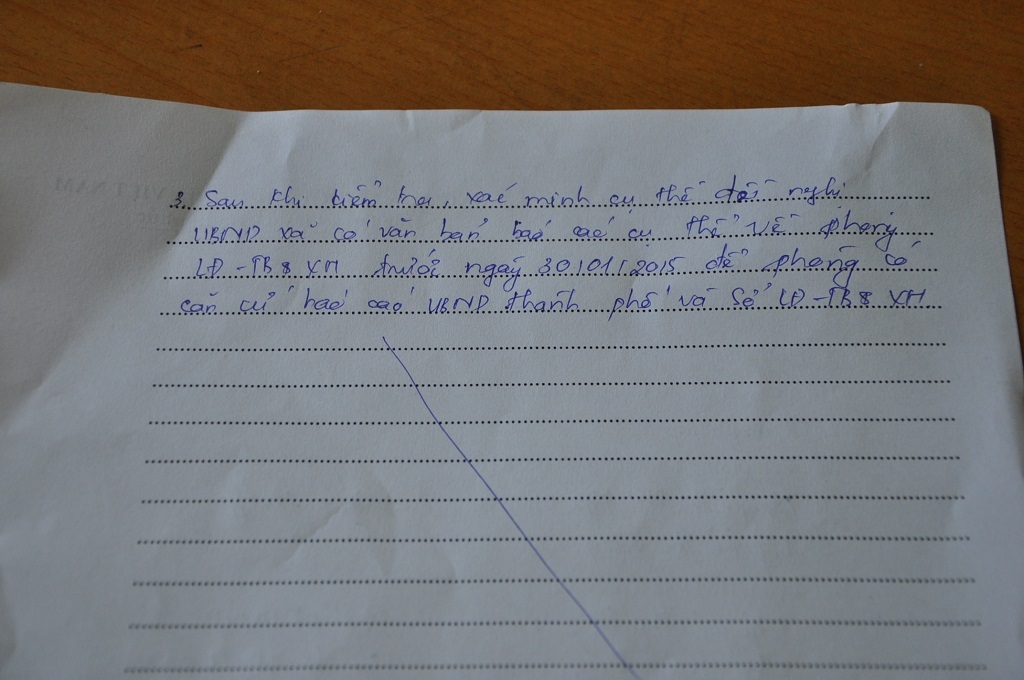 3. Sau khi kiểm tra, xác minh cụ thể đề nghị
UBND xã có văn bản báo cáo cụ thể về phòng
LĐ-TB & XH trước ngày 30/01/2015 để phòng có
căn cứ báo cáo UBND thành phố và Sở LĐ-TB & XH
VIỆT NAM